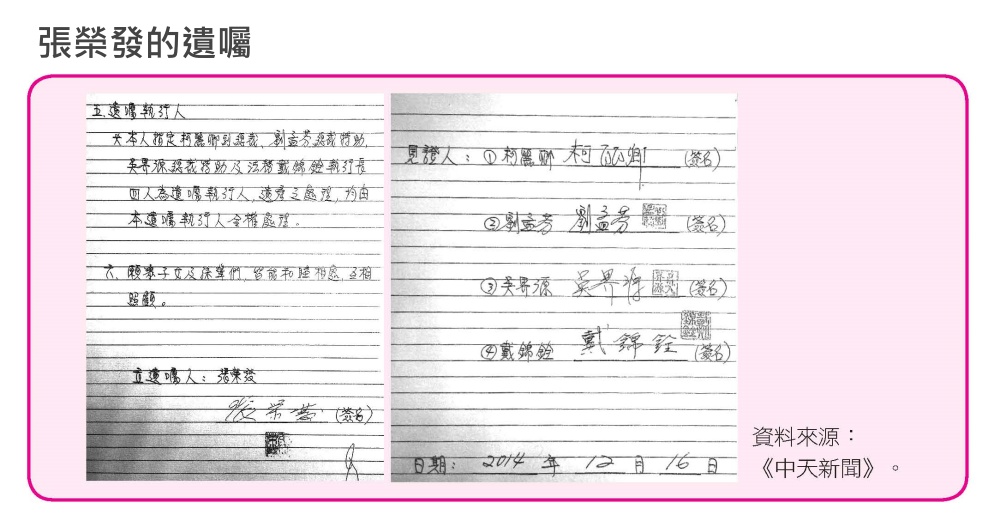 張榮發的遺囑
五.遺囑執行人
本人指定柯麗卿副總裁、劉孟芬總裁特助、
吳界源總裁特助及法務戴錦銓執行長
四人為遺囑執行人,遺產之處理,均由
本遺囑執行人全權處理。
六、願妻子女及孫輩們,皆能和睦相處,互相
照顧。
立遺囑人:張榮發
張榮發 (簽名)
見證人:①柯麗卿 柯麗卿 (簽名)
②劉孟芬 劉孟芬 (簽名)
③吳界源 吳界源 (簽名)
④戴錦銓 戴錦銓 (簽名)
日期: 2014 年 12 月 16 日
資料來源:
《中天新聞》。